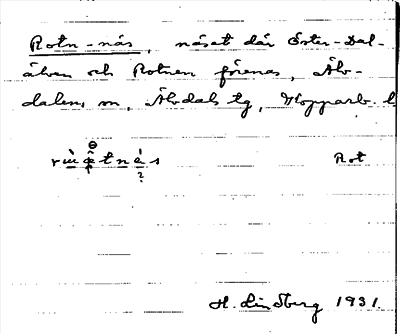 Rotn-näs, näset där Öster-Dal-
älven och Rotnen förenas, Älv-
dalens sn, Älvdals tg, Kopparb. l
Rot
H. Lindberg 1931.